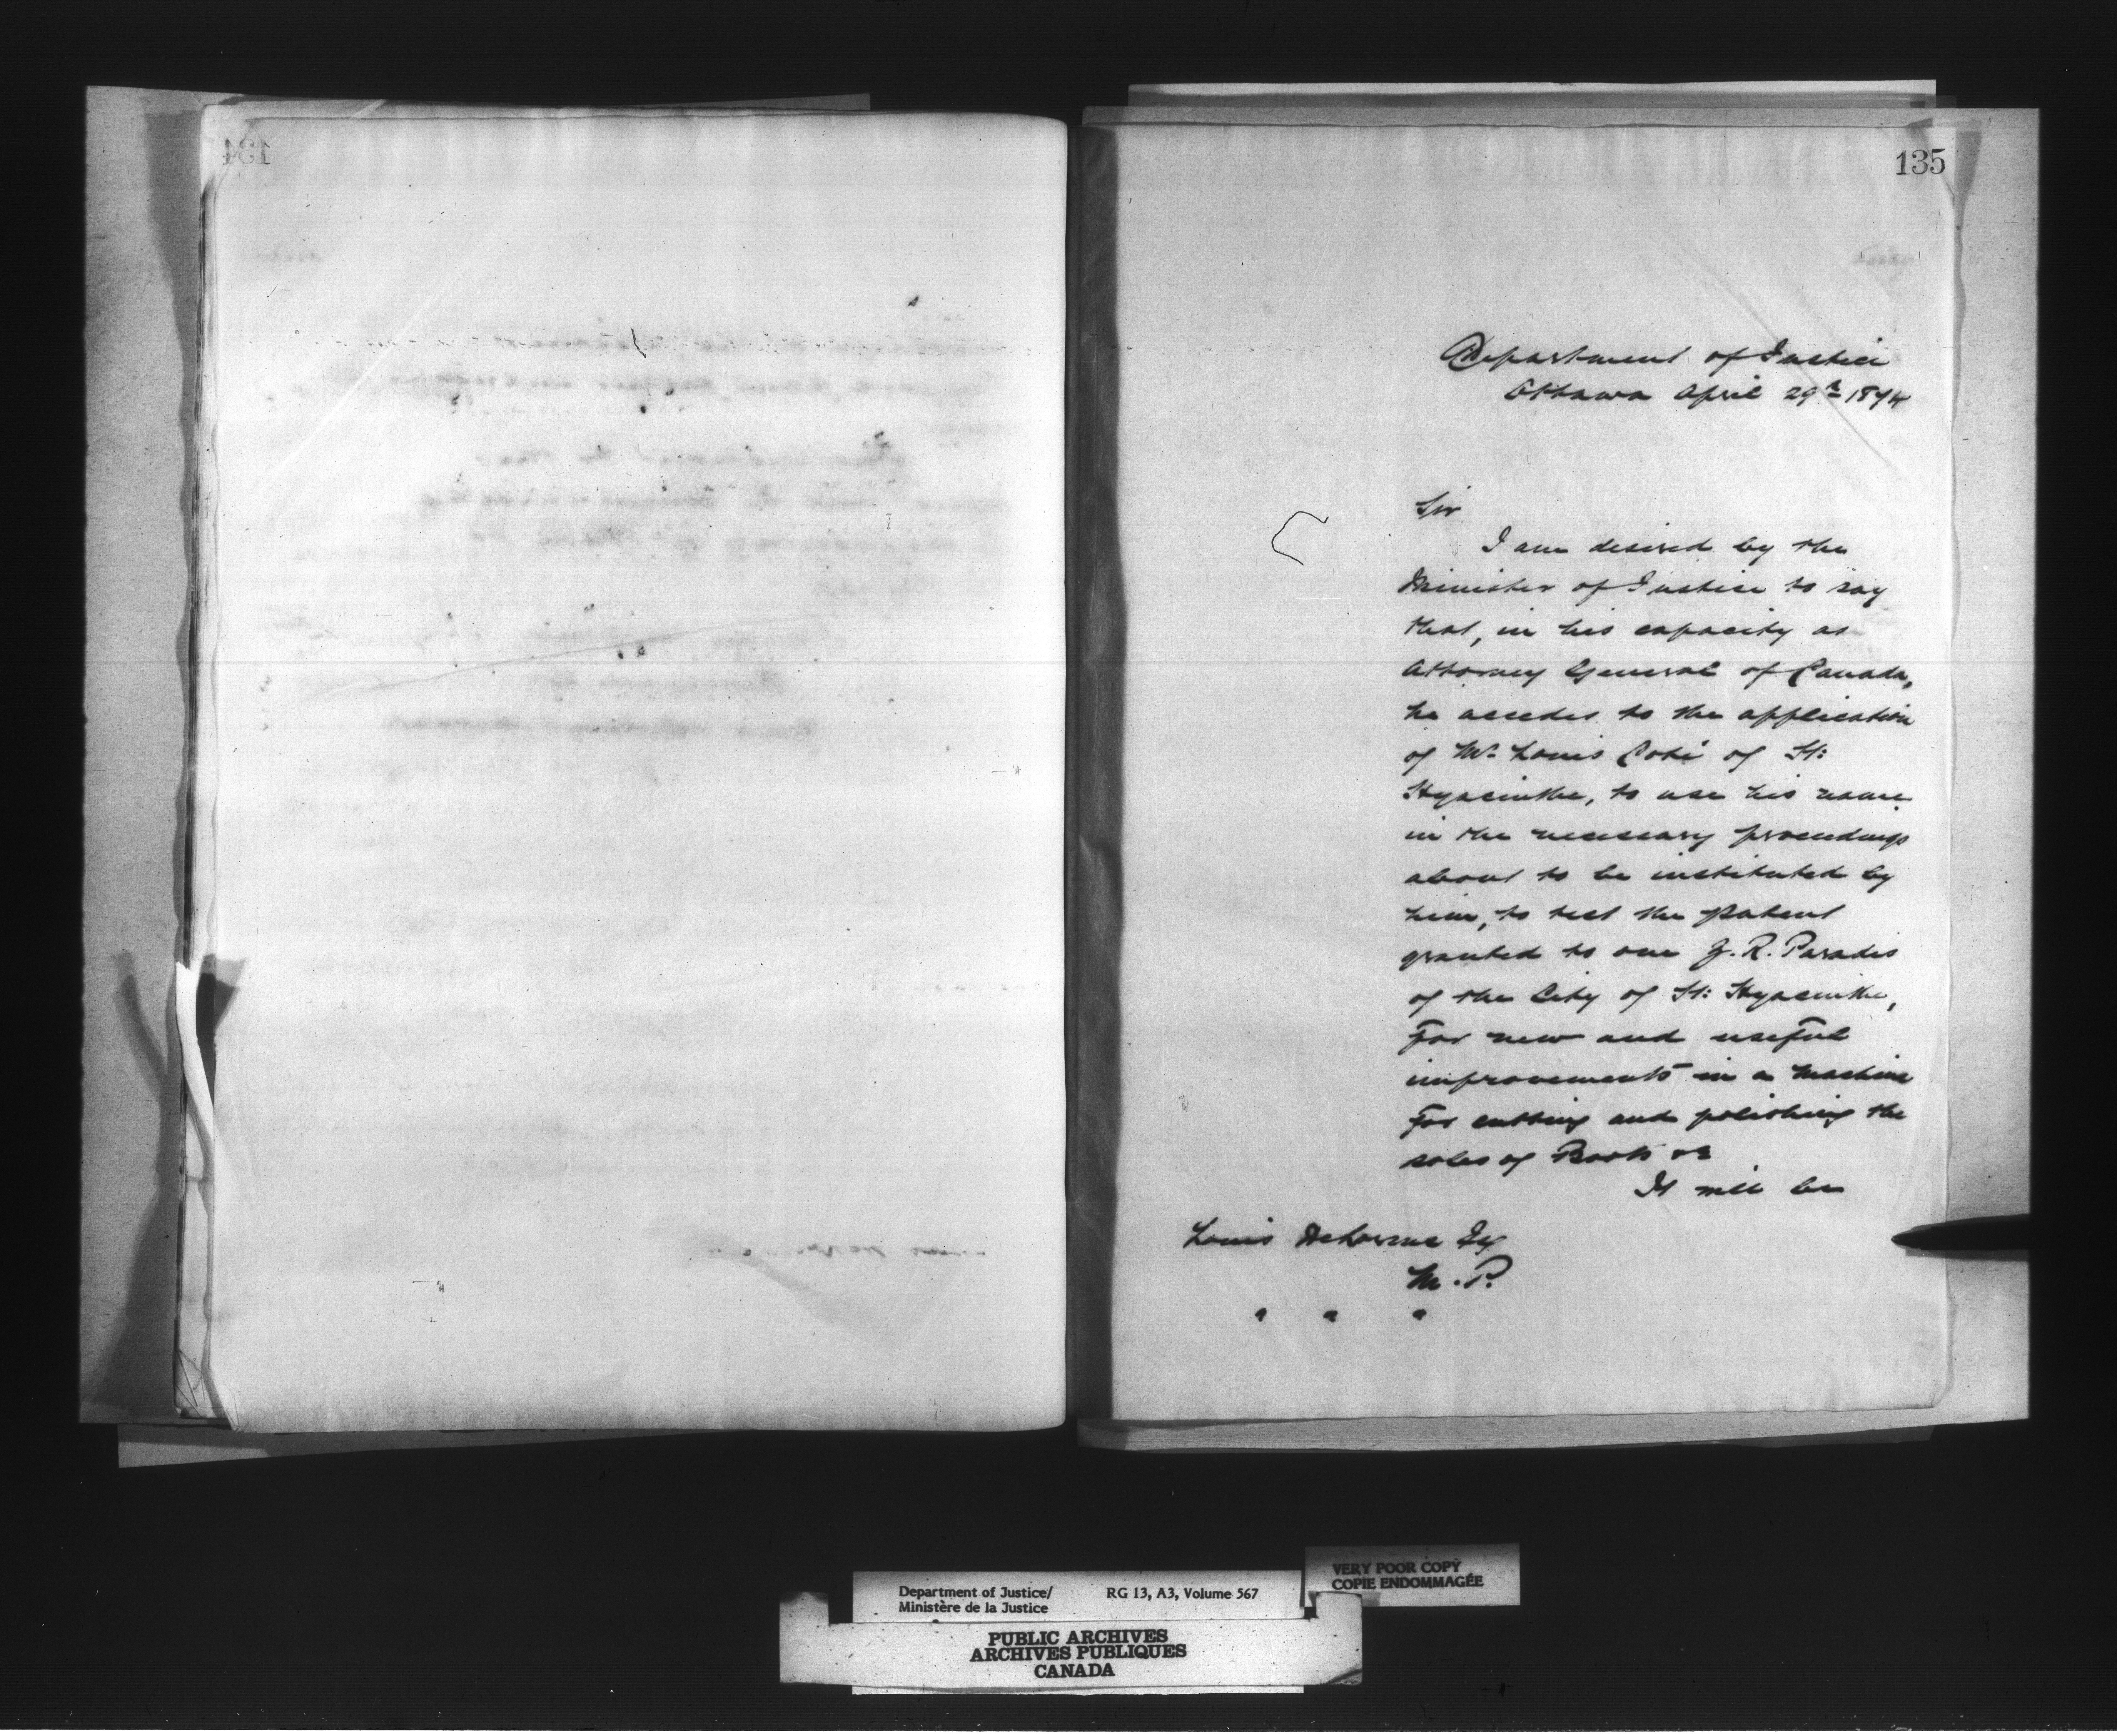 134
135
Department of Justice
Ottawa April 29th 1874
Sir
I am desired by the
Minister of Justice to say
that, in his capacity as
Attorney General of Canada,
he accedes to the application
of Mr Louis Coté of St:
Hyacinthe, to use his name
in the necessary proceedings
about to be instituted by
him, to test the patent
granted to one J. R. Paradis
of the City of St: Hyacinthe,
for new and useful
improvements in a machine
for cutting and polishing the
soles of Boots &c
It will be
Louis Delorme Esq
M. P.
" " "
Department of Justice/ RG 13, A3, Volume 567
Ministère de la Justice
VERY POOR COPY
COPIE ENDOMMAGÉE
PUBLIC ARCHIVES
ARCHIVES PUBLIQUES
CANADA